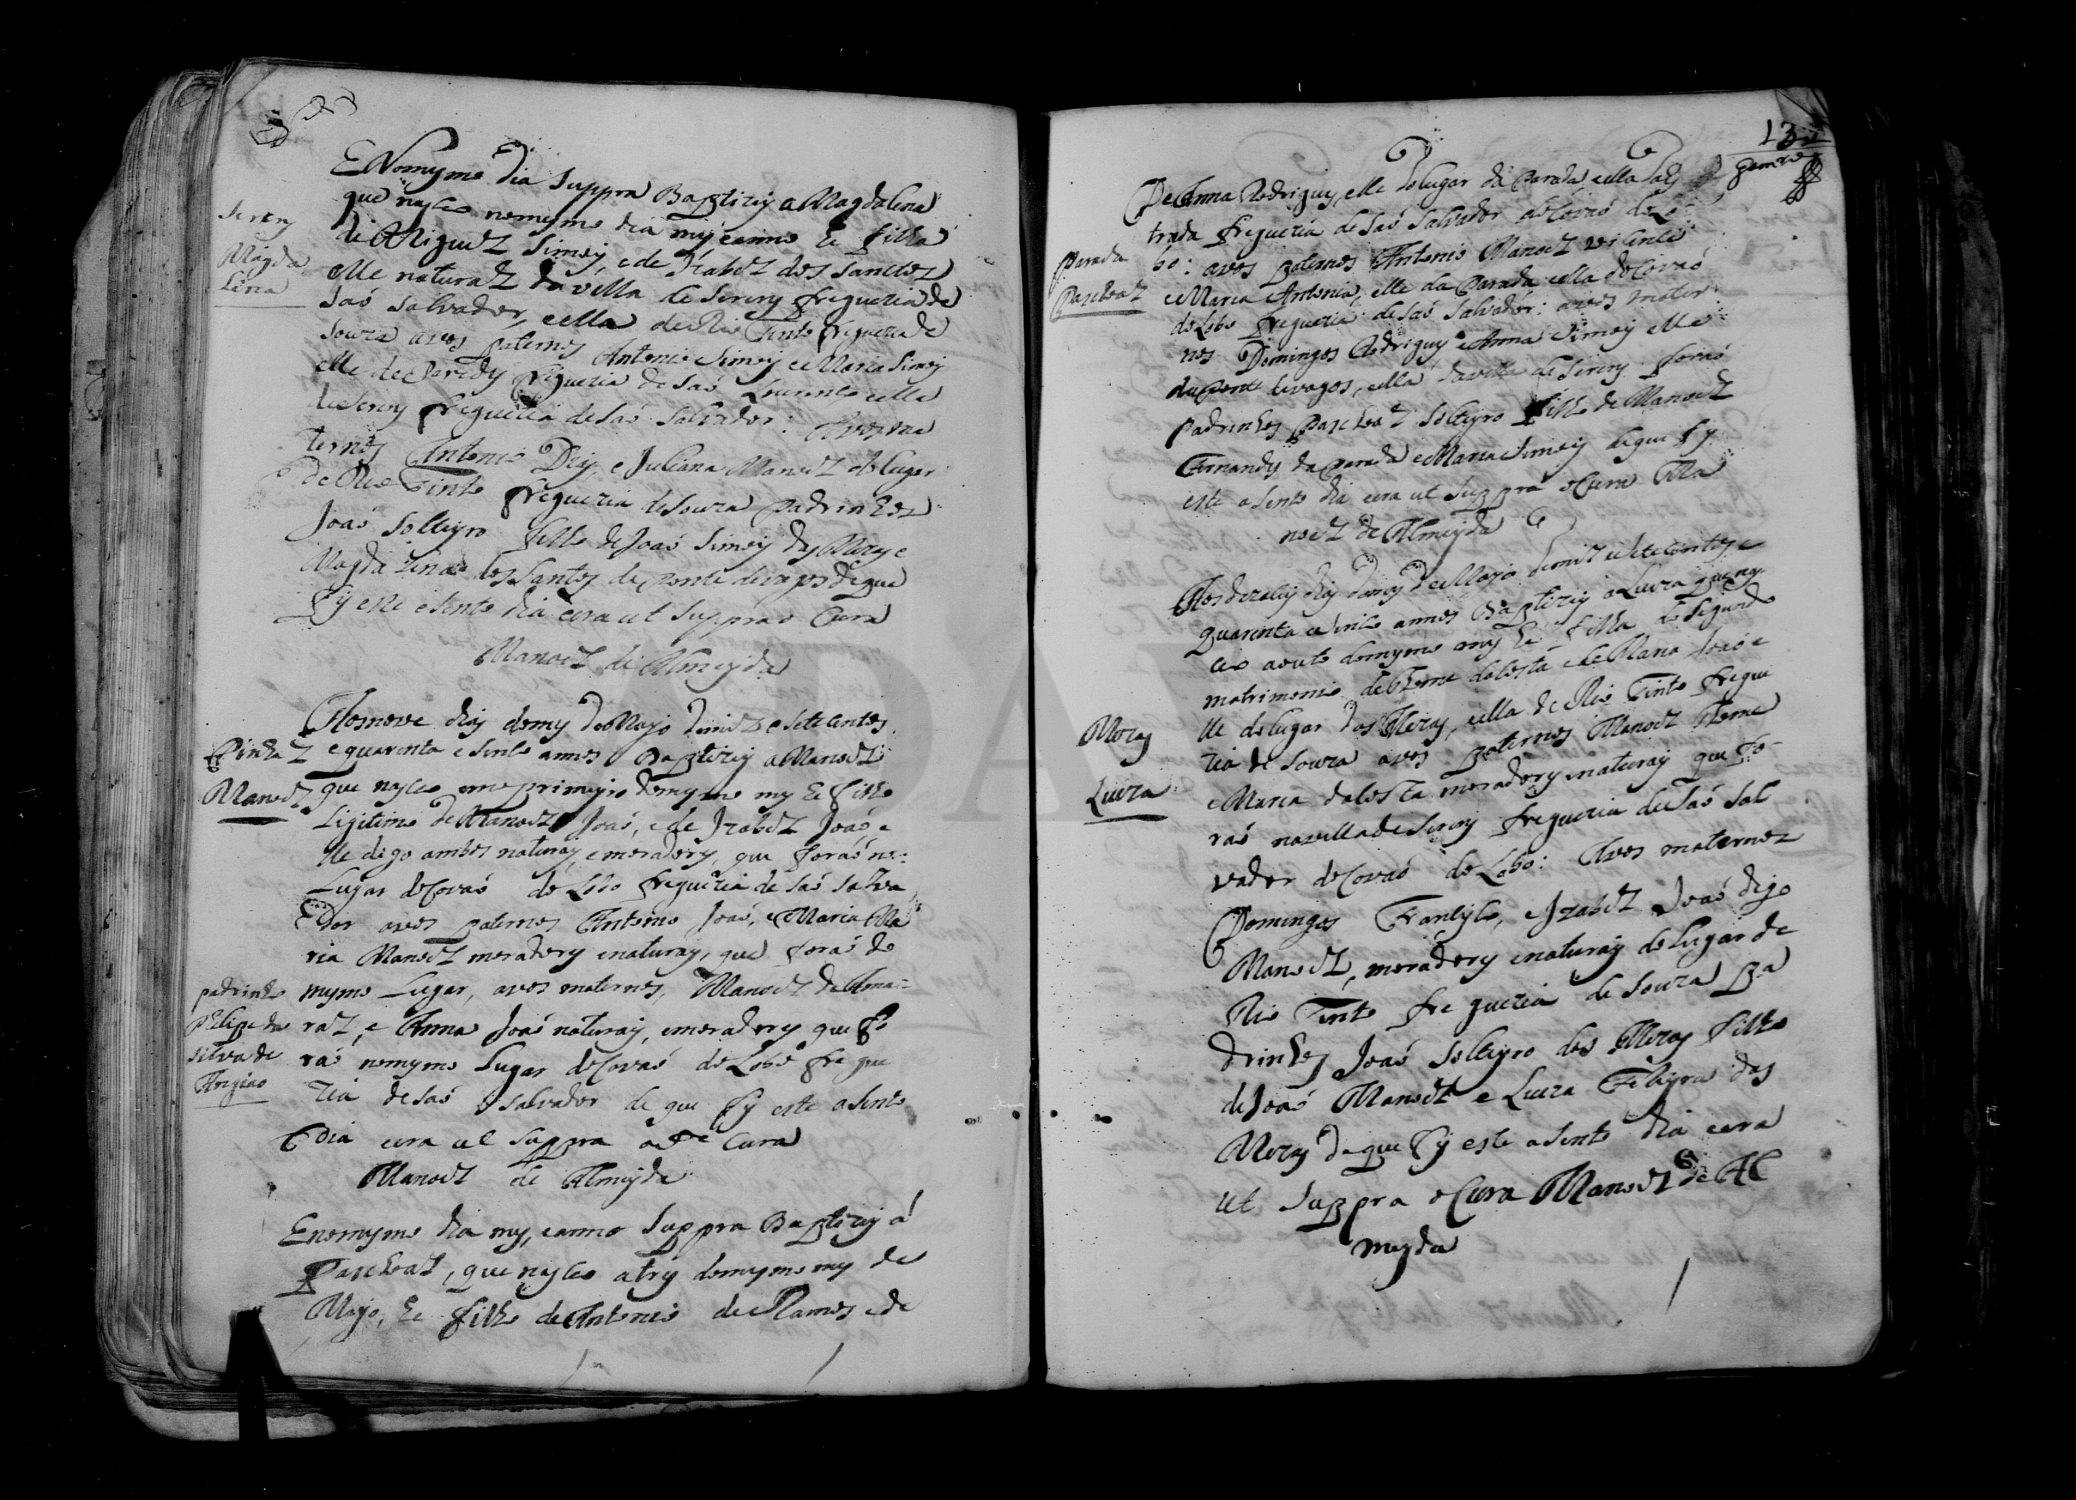 E Nomysmo dia suppra Baptizey a Magdalena
que nasceo nomysmo dia mez e anno he filha
de Miguel Simoiz, e de Izabel dos Sanctos
elle natural da villa de Serem freguezia de
Saó Salvador, e ella de Rio Tinto freguezia de
Souza avos paternos Antonio Simoiz e Maria Simoiz
elle de Paredes freguezia de Saó Lourenço e ella
de Serem freguezia de Saó Salvador: Avos ma
ternos Antonio Diz, e Juliana Manoel do lugar
de Rio Tinto freguezia de Souza Padrinhos
Joaó solteyro filho de Joaó Simoiz das Mezas e
Magdalena dos Santos de Ponte de vagos de que
fiz este asento dia e era ut suppra o Cura
Manoel de Almeyda
Serem
Magda
Lena
Aos nove dias do mez de Mayo de mil e sete centos
e quarenta e sinco annos Baptizey a Manoel
que nasceo em o primeyro do mysmo mez he filho
Ligitimo de Manoel Joaó, e de Izabel Joaó e
lle digo ambos naturaiz e moradores, que foraó no
Lugar de Covaó do Lobo freguezia de Saó Salva
dor avos paternos Antonio Joaó, e Maria Ma
ria Manoel moradores e naturaiz, que foraó do
mysmo Lugar, avos maternos, Manoel de Ama
ral, e Anna Joaó naturaiz, e moradores que fo
raó no mysmo Lugar de Covaó do Lobo fregue
zia de Saó Salvador de que fiz este asento
dia e era ut suppra o Cura
Manoel de Almeyda
Manoel
padrinho
Felipe da
Silva de
E no mysmo dia mez, e anno suppra Baptizey á
Paschoal, que nasceo a trez do mysmo mez de
Mayo, he filho de Antonio de Ramos e de
13
De Anna Rodriguez, elle do lugar da Parada e ella da Es
trada freguezia de Saó Salvador de Covaó do Lo
bo: avos paternos Antonio Manoel
e Maria Antonia, elle da Parada e ella de Covaó
do Lobo freguezia de Saó Salvador: avos mater
nos Domingos Rodriguez e Anna Simoiz elle
da Ponte de vagos, e ella da villa de Serem foraó
padrinhos Paschoal solteyro filho de Manoel
Fernandes da Parada e Maria Simoiz de que fiz
este asento dia e era ut suppra o Cura Ma
noel de Almeyda
Parada
Paschoal
Aos dias do mez de Mayo de mil e sete centos e
quarenta e sinco annos Baptizey a Luiza que nas
ceo a outo do mysmo mez he filha do segundo
matrimonio de Thome da Costa e de Maria Joaó e
lle do lugar das Mezas, e ella de Rio Tinto fregue
zia de Souza avos paternos Manoel Thome
e Maria da Costa moradores e naturaiz que fo
raó na villa de Serem freguezia de Saó Sal
vador de Covaó do Lobo: Avos maternos
Domingos Francisco, e Izabel Joaó digo
Manoel, moradores e naturaiz do Lugar de
Rio Tinto freguezia de Souza Pa
drinhos Joaó solteyro das Mezas filho
de Joaó Manoel e Luiza das
Mezas de que fiz este asento dia e era
ut suppra o Cura Manoel de Al
meyda
Mezas
Luiza